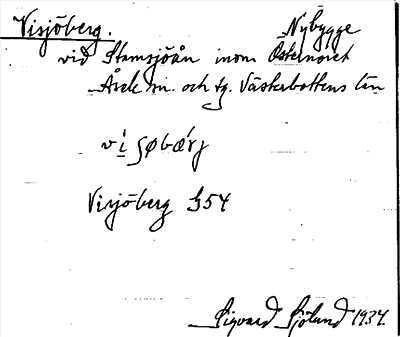 Visjöberg. Nybygge
vid Stamsjöån inom Östernoret
Åsele sn. och tg. Västerbottens län
vi ʃøbærj
Visjöberg G54
Sigvard Sjölund 1934.